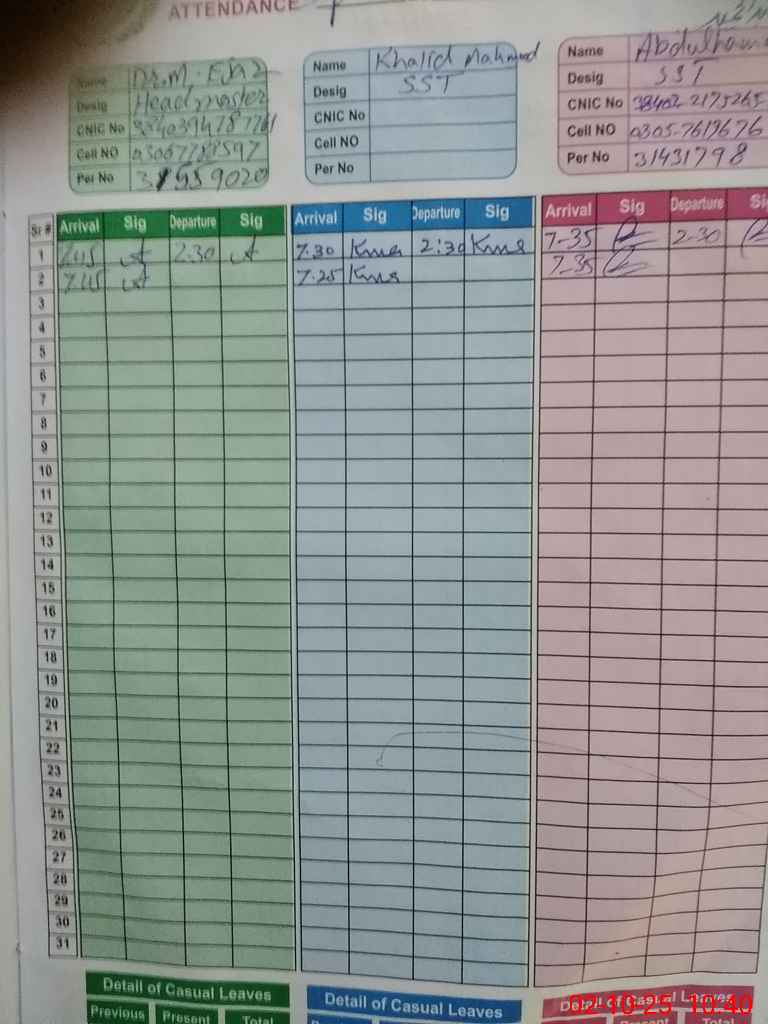 ATTENDANCE
Name Dr. M. Ejaz
Desig Headmaster
CNIC No
Cell NO
Per No
Name Khalid Mahmood
Desig SST
CNIC No
Cell NO
Per No
Name
Desig SST
CNIC No 38402-2175265
Cell NO 0305-7619676
Per No 31431798
Sr # Arrival Sig Departure Sig Arrival Sig Departure Sig Arrival Sig Departure Sig
1 7.45 2.30 7.30 Kma 2:30 Kma 7-35 2-30
2 7.45 7.25 Kma 7-35
3
4
5
6
7
8
9
10
11
12
13
14
15
16
17
18
19
20
21
22
23
24
25
26
27
28
29
30
31
Detail of Casual Leaves Detail of Casual Leaves Detail of Casual Leaves
Previous Present Total Present Total
02-10-25 10:40